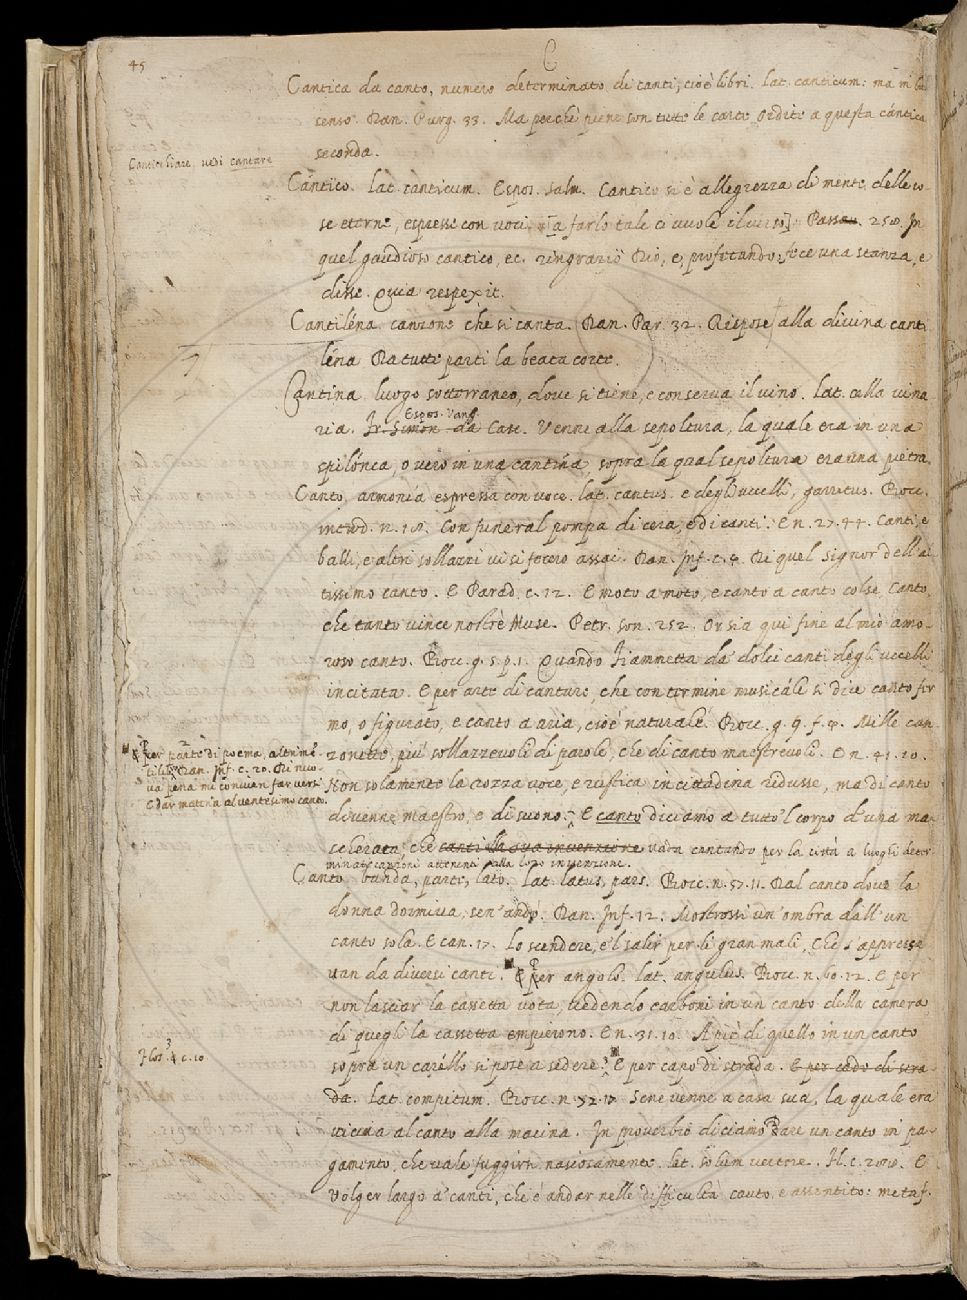 45
C
Cantica da canto, numero determinato di canti, cioè libri. Lat. canticum: ma in
senso. Dan. Purg. 33. Ma perchè piene son tutte le carte Ordite a questa cántica
seconda.
vedi cantare
Cántico. Lat. canticum. Espos. Salm. Cantico si è allegrezza di mente, delle co-
se eterne, espresse con voci, a farlo tale ci vuole il verso] Passau. 258. In
quel gaudioso cantico, ec. ringraziò Dio, e, profetando, fece una stanza, e
disse. Quia respexit.
Cantiléna canzone che si canta. Dan. Par. 32. Rispose alla divina canti
léna Da tutte parti la beata corte.
Cantína luogo sotterraneo, dove si tiene, e conserva il vino. Lat. cella vina
Espos. Vang.
ria. Fr. Simon da Casc. Venne alla sepoltura, la quale era in una
spilónca, o vero in una cantína, sopra la qual sepoltura era una pietra.
Canto, armonía espressa con voce. lat. cantus. e degli uccelli, garritus. Bocc.
introd. n. 18. Con funeral pompa di cera, e di canti. E n. 27. 44. Canti, e
balli, e altri sollazzi vi si fecero assai. Dan. Inf. c. 4. Di quel signor dell'al
tissimo canto. E Parad. c. 12. E moto a moto, e canto a canto colse, Canto,
che tanto vince nostre Muse. Petr. son. 252. Or sia qui fine al mio amo-
roso canto. Bocc. g. 5. p. 1. Quando Fiammetta da' dolci canti degli uccelli
incitata. E per arte di cantare, che con termine musicále si dice canto fer
mo, o figurato, e canto a aria, cioè naturale. Bocc. g. 9. f. 4. Mille can-
zonette, più sollazzevoli di parole, che di canto maestrevoli. E n. 41. 10.
E per parte di poema, altrimé
ti Dan. Inf. c. 20. Di nuo-
va pena mi convien far versi
E dar matera al ventesimo canto.
Non solamente la rozza voce, e rustica in cittadina ridusse, ma di canto
divenne maestro, e di suono. E canto diciamo a tutto 'l corpo d'una ma-
scherata, che canti la sua invenzione vada cantando per la città a luoghi deter-
minati canzoni attenenti alla loro invenzione.
Canto banda, parte, lato. Lat. latus, pars. Bocc. n. 57. 11. Dal canto dove la
donna dormiva, sen'andò. Dan. Inf. 12. Mostrossi un'ombra dall'un
canto sola. E can. 17. Lo scendere, e 'l salir per li gran mali, Che s'appressa
van da diversi canti. E per angolo. lat. angulus. Bocc. n. 60. 12. E per
non lasciar la cassetta vota, vedendo carboni in un canto della camera
di quegli la cassetta empierono. E n. 31. 10. A piè di quello in un canto
sopra un carello si pose a sedere. E per capo di strada. E per cado di stra-
3
4 c. 10
da. Lat. compitum. Bocc. n. 52. 17 Sene venne a casa sua, la quale era
vicina al canto alla macina. In proverbio diciamo Dare un canto in pa-
gamento, che vale fuggirsi nascosamente. lat. solum vertere. E
Volger largo a' canti, che è andar nelle difficultà cauto, e assentito: metaf.